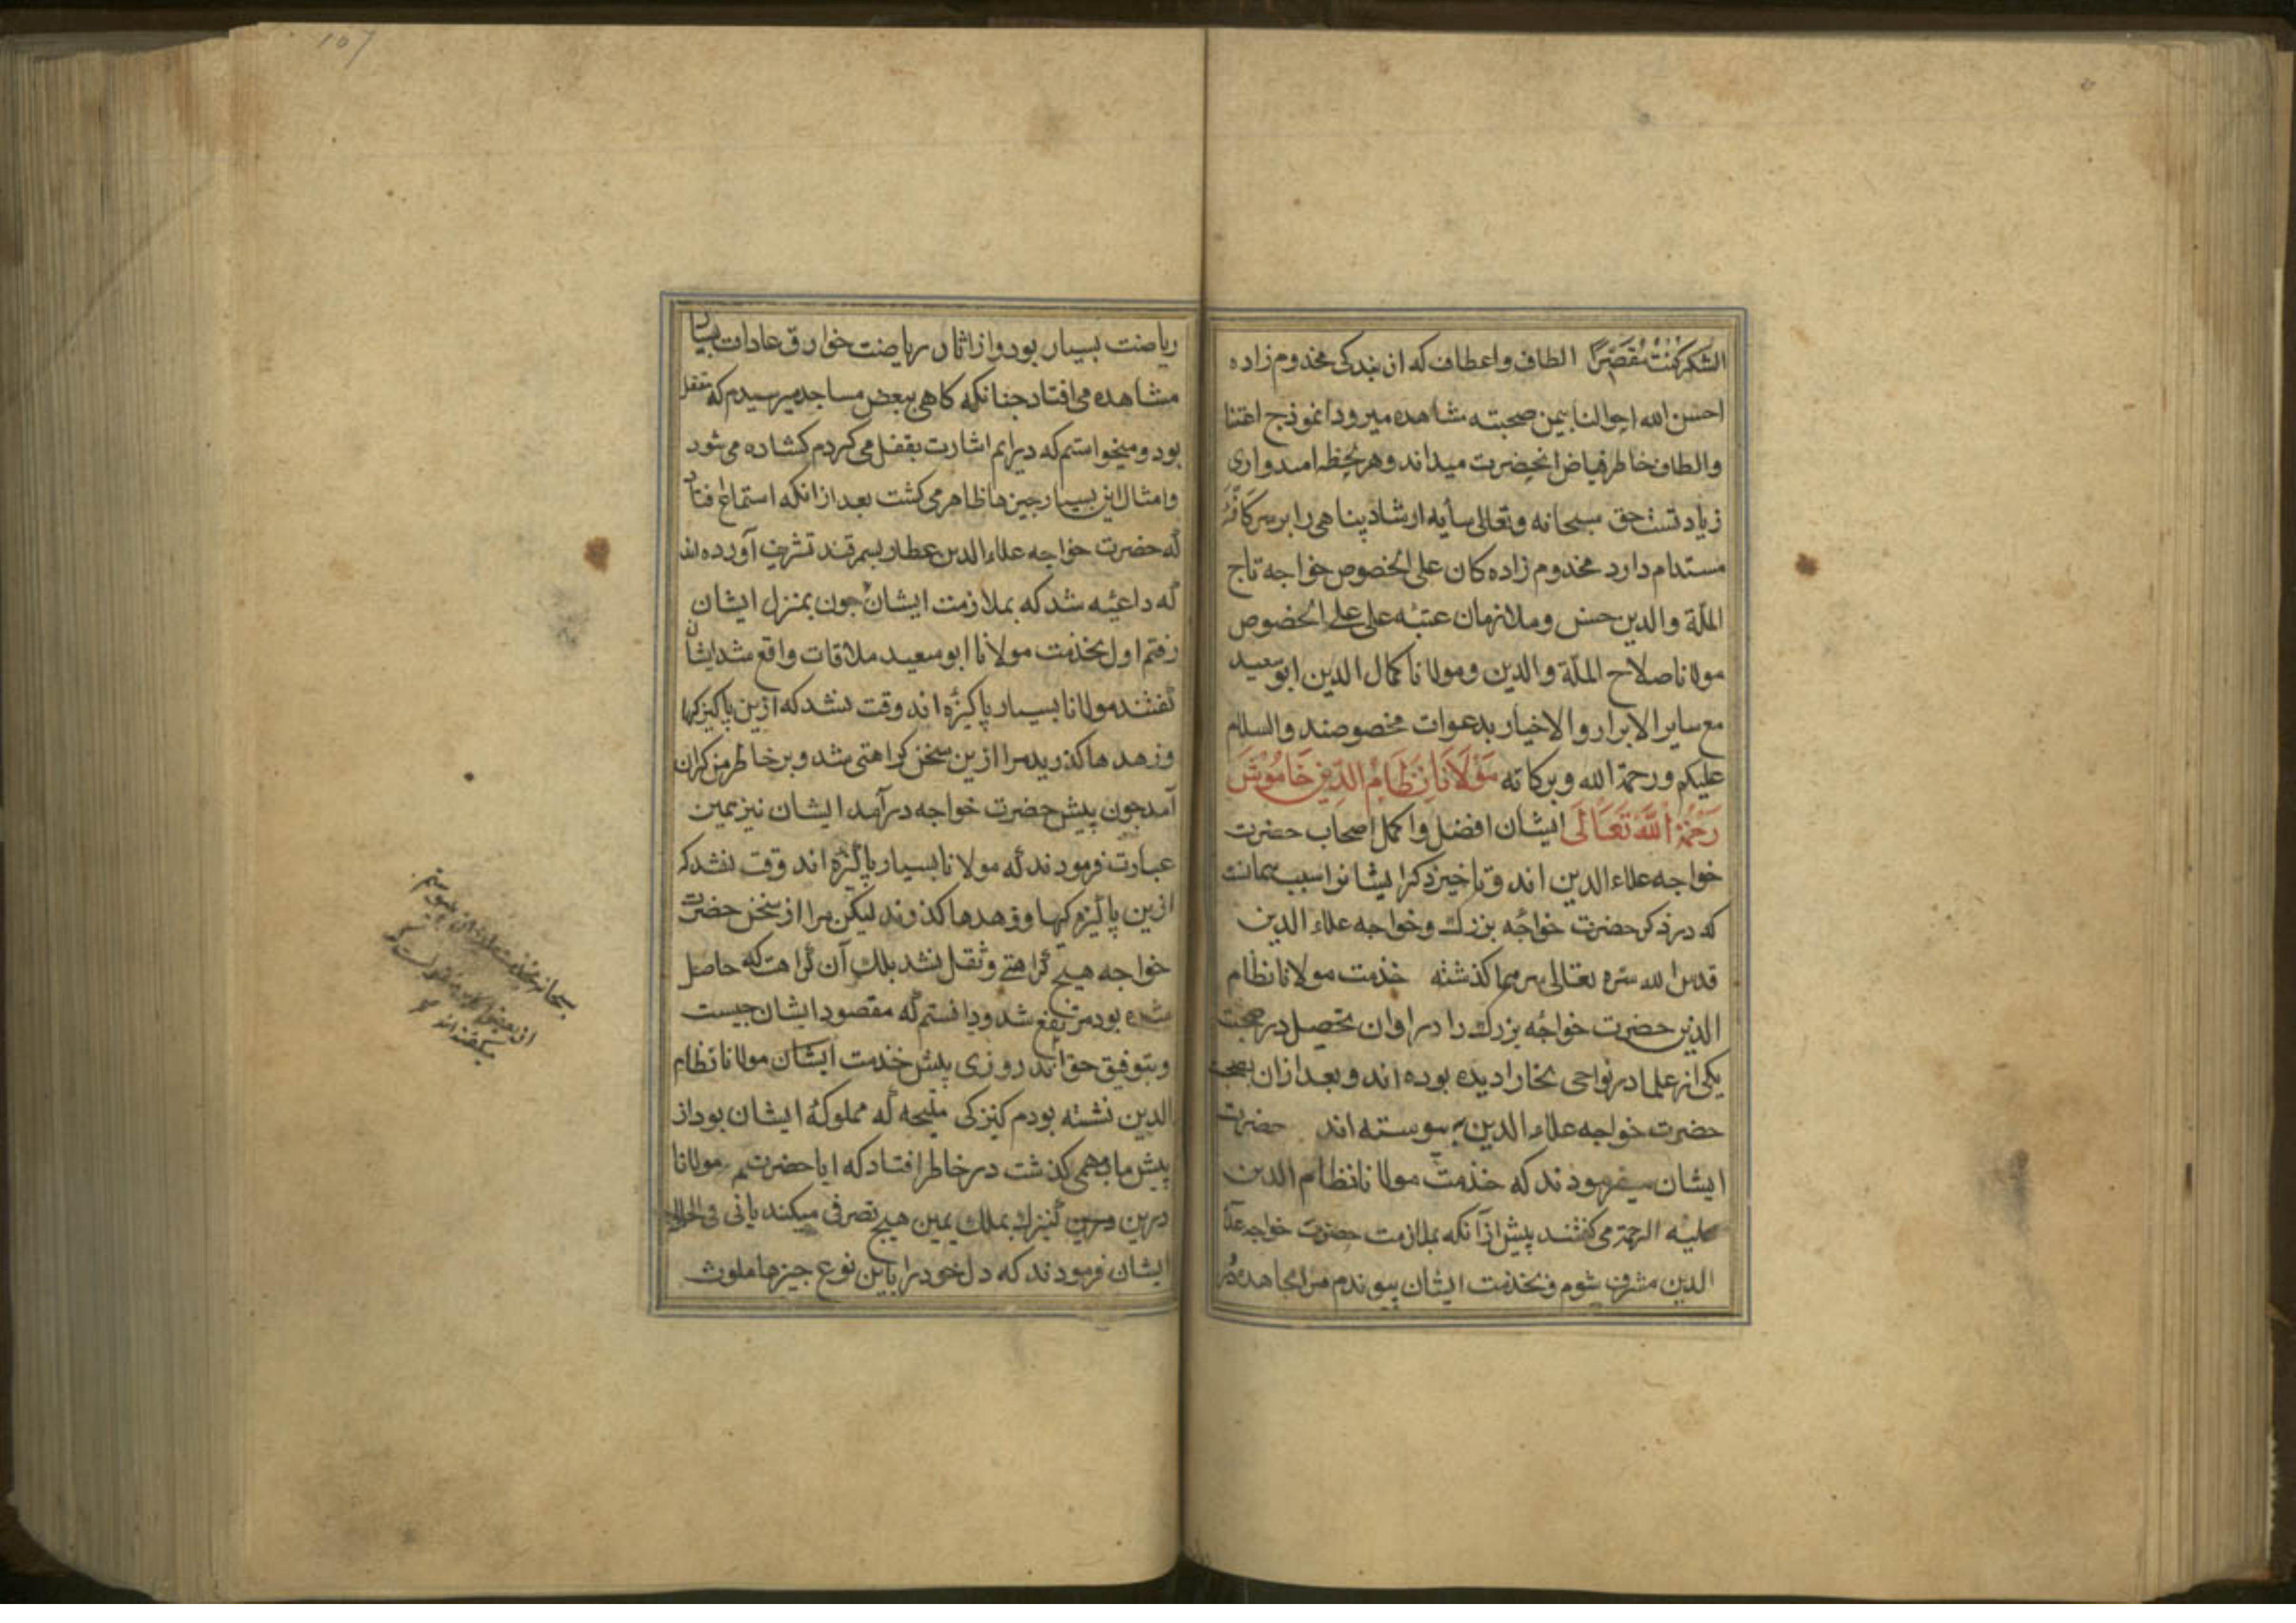 الشكر كنت مقصرا الطاف واعطاف که از بندکی مخدوم زاده
احسن الله احوالنا بیمن صحبته مشاهده میرود انموذج اعتنا
والطاف خاطر فیاض انحضرت میداند وهر لحظه امیدواری
زیادتست حق سبحانه وتعالی سایه ارشاد پناهی را بر سر کافه
مستدام دارد مخدوم زاده کان علی الخصوص خواجه تاج
الملة والدین حسن وملازمان عتبه علی علی الخصوص
مولانا صلاح الملة والدین ومولانا کمال الدین ابو سعید
مع سایر الابرار والاخیار بدعوات مخصوصند والسلام
علیکم ورحمة الله وبرکاته مَولَانَا نِظَامُ الدِّینِ خَامُوش
رَحْمَةُ اللَّه تَعَالَی ایشان افضل واکمل اصحاب حضرت
خواجه علاء الدین اند وتاخیر ذکر ایشانرا سبب همانست
که در ذکر حضرت خواجه بزرك وخواجه علاء الدین
قدس الله سره تعالی سرهما کذشته خذمت مولانا نظام
الدین حضرت خواجه بزرك را در اوان تحصیل در صحبت
یکی از علما در نواحی بخارا دیده بوده اند وبعد ازان بصحبت
حضرت خواجه علاء الدین پیوسته اند حضرت
ایشان میفرمودند که خذمت مولانا نظام الدین
علیه الرحمة می کفتند پیش از آنکه بملازمت حضرت خواجه علا
الدین مشرف شوم وبخذمت ایشان پیوندم مرا مجاهده و
ریاضت بسیار بود واز اثار ریاضت خوارق عادات بسیار
مشاهده می افتاد چنانکه کاهی ببعض مساجد میرسیدم که مقفل
بود ومیخواستم که درایم اشارت بقفل می کردم کشاده می شود
وامثال این بسیار چیزها ظاهر می کشت بعد از انکه استماع افتاد
که حضرت خواجه علاء الدین عطار بسمرقند تشریف آورده اند
که داعیه شد که بملازمت ایشان چون بمنزل ایشان
رفتم اول بخذمت مولانا ابو سعید ملاقات واقع شد ایشان
کفتند مولانا بسیار پاکیزه اند وقت نشد که ازین پاکیزکیها
وزهدها کذرید مرا ازین سخن کراهتی شد وبر خاطر من کران
آمد چون پیش حضرت خواجه درآمد ایشان نیز همین
عبارت فرمودند که مولانا بسیار پاکیزه اند وقت نشد که
ازین پاکیزه کیها وزهدها کذرند لیکن مرا از سخن حضرت
خواجه هیچ کراهتی وثقل نشد بلك آن کراهت که حاصل
شده بود مرتفع شد ودانستم که مقصود ایشان چیست
وبتوفیق حق اند روزی پیش خذمت ایشان مولانا نظام
الدین نشسته بودم کنیزکی ملیحه که مملوکهٔ ایشان بود از
پیش ما بمهمی کذشت در خاطر افتاد که ایا حضرت مولانا
درین کنیزك بملك یمین هیچ تصرفی میکند یانی فی الحال
ایشان فرمودند که دل خود را باین نوع چیزها ملوث
107